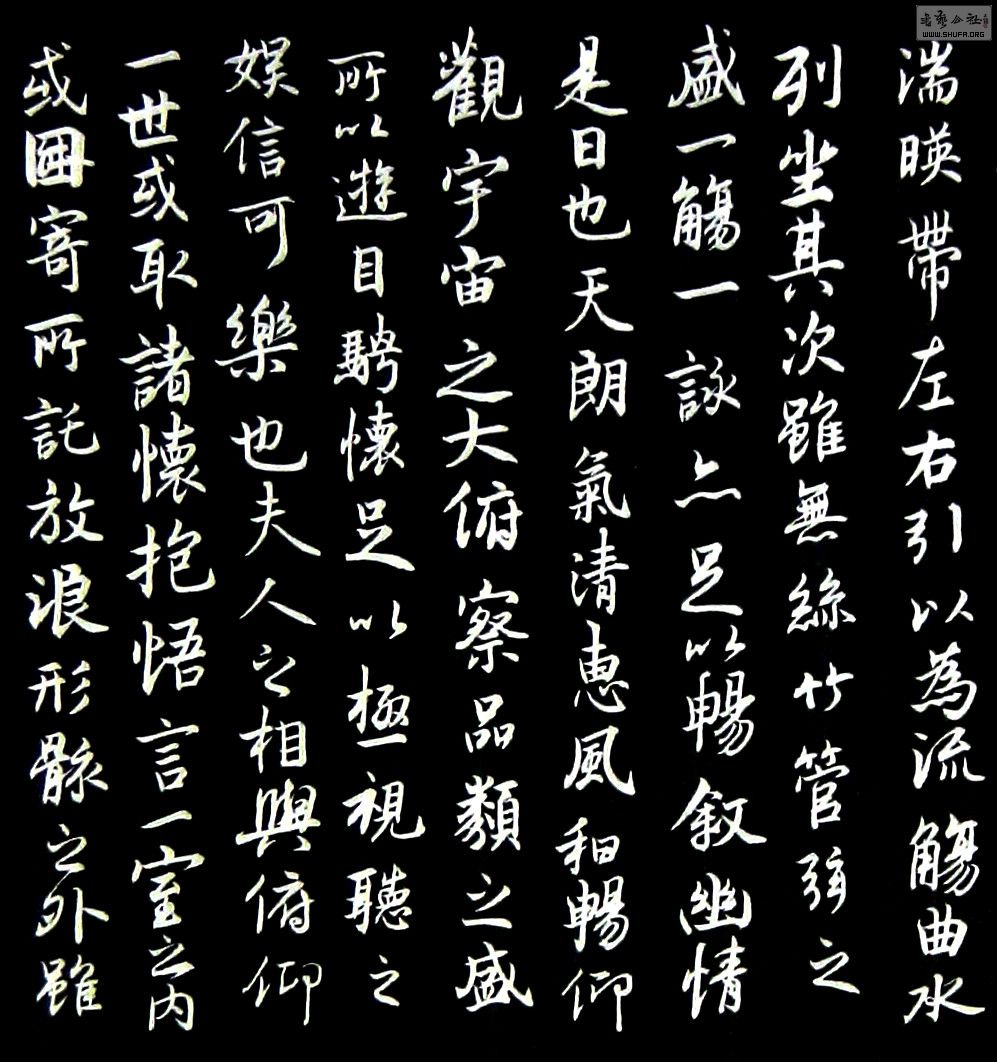 湍暎帶左右引以為流觴曲水
列坐其次雖無絲竹管弦之
盛一觴一詠亦足以暢叙幽情
是日也天朗氣清惠風和暢仰
觀宇宙之大俯察品類之盛
所以遊目騁懷足以極視聽之
娛信可樂也夫人之相與俯仰
一世或取諸懷抱悟言一室之內
或因寄所託放浪形骸之外雖
書藝公社
WWW.SHUFA.ORG